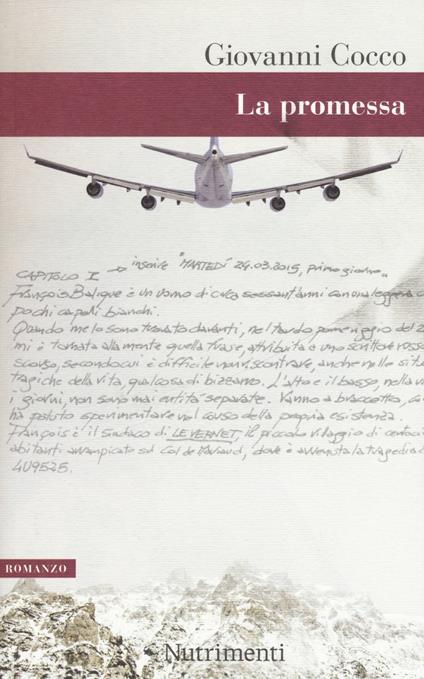 Giovanni Cocco
La promessa
CAPITOLO I → inserire "MARTEDÌ 24.03.2015, primo giorno"
François Balique è un uomo di circa sessant'anni con una leggera
pochi capelli bianchi.
Quando me lo sono trovato davanti, nel tardo pomeriggio del 2
mi è tornata alla mente quella frase, attribuita a uno scrittore russo
scorso, secondo cui è difficile non riscontrare, anche nelle situ
tragiche della vita, qualcosa di bizzarro. L'alto e il basso, nella vi
i giorni, non sono mai entità separate. Vanno a braccetto, co
ha potuto sperimentare nel corso della propria esistenza.
François è il sindaco di LE VERNET, il piccolo villaggio di
abitanti arrampicato sul Col de Mariaud, dove è avvenuta la tragedia d
4U9525.
ROMANZO
Nutrimenti